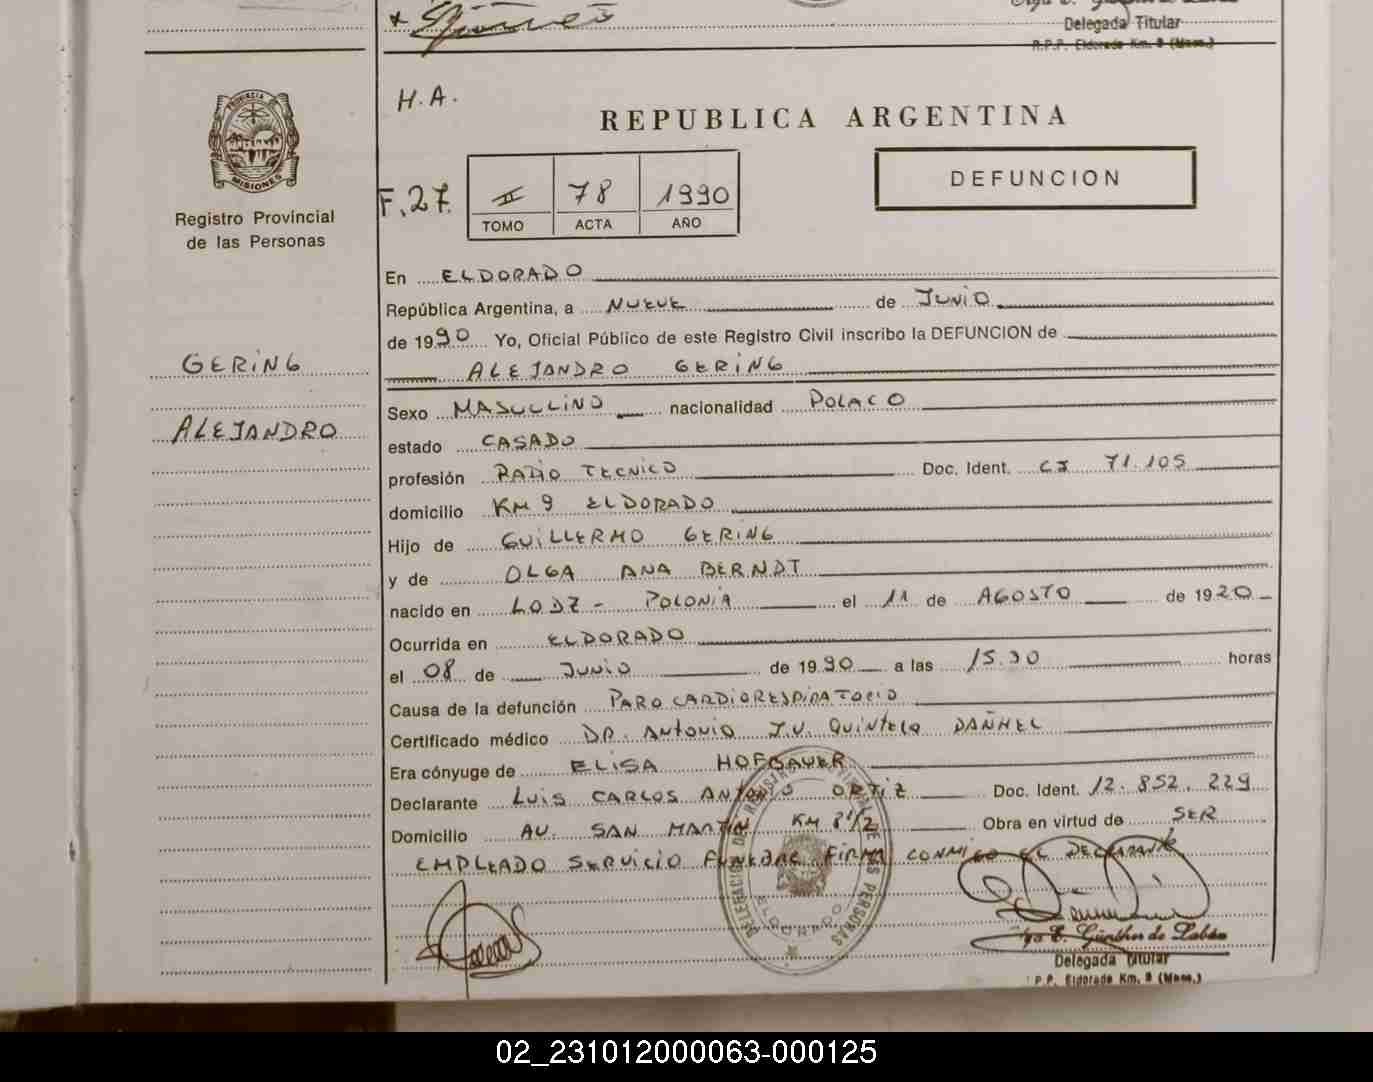 Delegada Titular
R.P.P. Eldorado Km. 9 (Mnes.)
H.A.
REPUBLICA ARGENTINA
PROVINCIA DE
MISIONES
Registro Provincial
de las Personas
F.27.
II 78 1990
TOMO ACTA AÑO
DEFUNCION
GERING
ALEJANDRO
En ELDORADO
República Argentina, a NUEVE de JUNIO
de 1990 Yo, Oficial Público de este Registro Civil inscribo la DEFUNCION de
ALEJANDRO GERING
Sexo MASCULINO nacionalidad POLACO
estado CASADO
profesión RADIO TECNICO Doc. Ident. CI 71.105
domicilio KM 9 ELDORADO
Hijo de GUILLERMO GERING
y de OLGA ANA BERNDT
nacido en LODZ - POLONIA el 11 de AGOSTO de 1920
Ocurrida en ELDORADO
el 08 de JUNIO de 1990 a las 15.30 horas
Causa de la defunción PARO CARDIORESPIRATORIO
Certificado médico DR. ANTONIO J.V. QUINTELA DAÑHEL
Era cónyuge de ELISA HOFBAUER
Declarante LUIS CARLOS ANTONIO ORTIZ Doc. Ident. 12.852.229
Domicilio AV. SAN MARTIN KM 8 1/2 Obra en virtud de SER
EMPLEADO SERVICIO FUNEBRE FIRMA CONMIGO EL DECLARANTE
DELEGACION DEL REGISTRO PROVINCIAL DE LAS PERSONAS
ELDORADO
E. Günther de Labán
Delegada Titular
R.P.P. Eldorado Km. 9 (Mnes.)
02_231012000063-000125